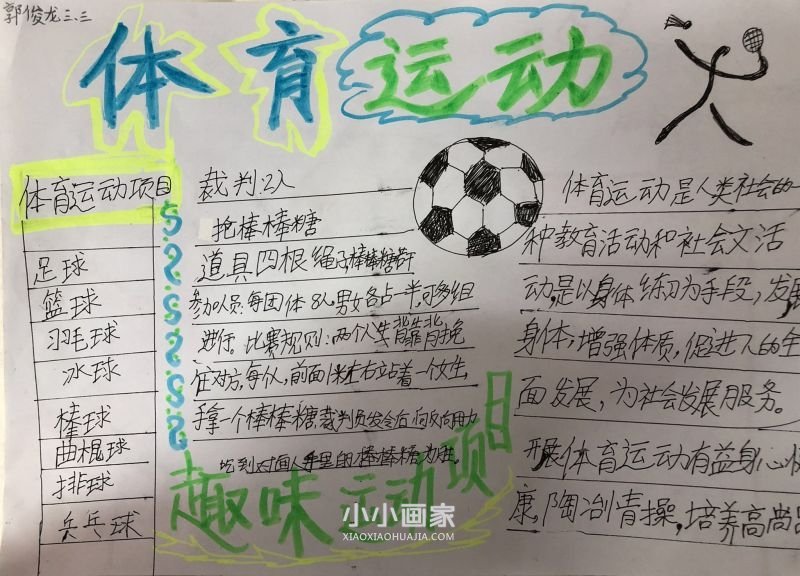 郭俊龙三、三
体育运动
体育运动项目
足球
篮球
羽毛球
冰球
棒球
曲棍球
排球
乒乓球
裁判2人
抢棒棒糖
道具四根绳子棒棒糖若干
参加人员:每团体8人,男女各占一半,可多组
进行。比赛规则:两个人背靠背挽
住对方,每队,前面1米左右站着一个女生
手拿一个棒棒糖,裁判员发令后,向反向用力
吃到对面人手里的棒棒糖为胜。
趣味运动项目
体育运动是人类社会的一
种教育活动和社会文活
动,是以身体练习为手段,发展
身体,增强体质,促进人的全
面发展,为社会发展服务。
开展体育运动有益身心健
康,陶冶情操,培养高尚品
小小画家
XIAOXIAOHUAJIA.COM